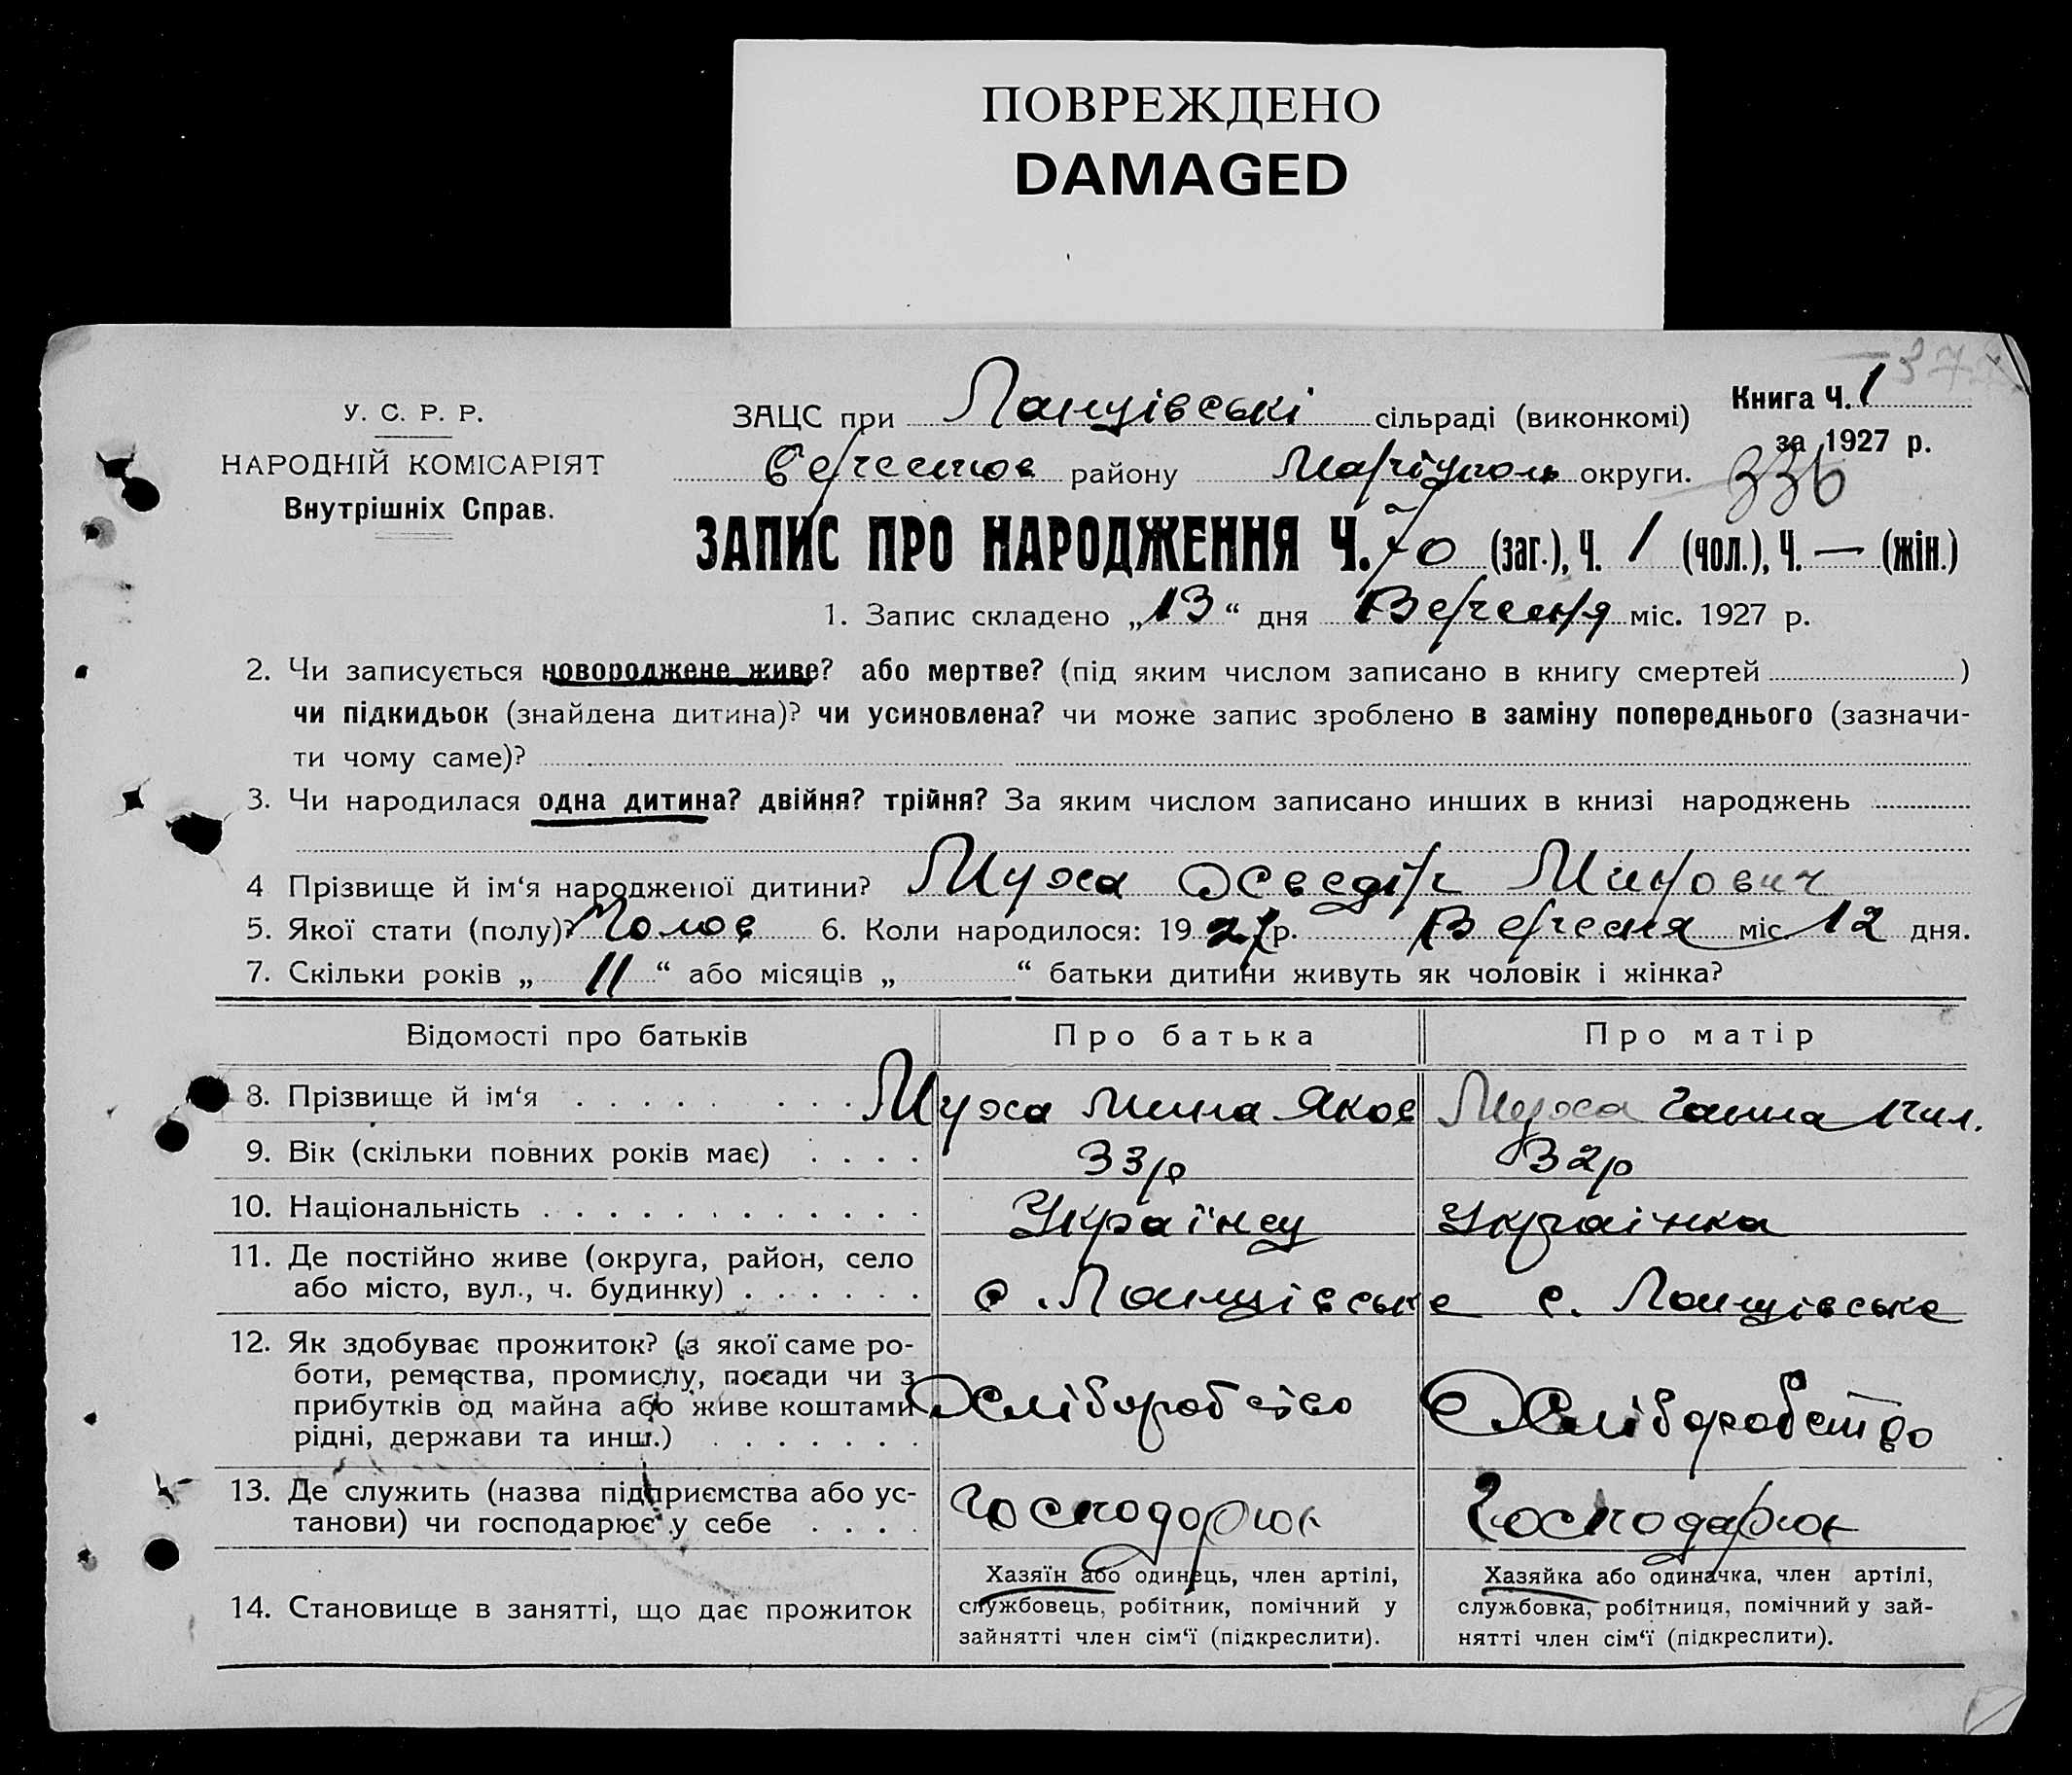 ПОВРЕЖДЕНО
DAMAGED
372
У. С. Р. Р.
НАРОДНІЙ КОМІСАРІЯТ
Внутрішніх Справ.
ЗАЦС при Ланцівські сільраді (виконкомі)
Книга Ч. 1
за 1927 р.
району Маріуполь округи.
336
ЗАПИС ПРО НАРОДЖЕННЯ Ч. 70 (заг.), Ч. 1 (чол.), Ч. — (жін.)
1. Запис складено „13“ дня Вересня міс. 1927 р.
2. Чи записується новороджене живе? або мертве? (під яким числом записано в книгу смертей )
чи підкидьок (знайдена дитина)? чи усиновлена? чи може запис зроблено в заміну попереднього (зазначи-
ти чому саме)?
3. Чи народилася одна дитина? двійня? трійня? За яким числом записано инших в книзі народжень
4 Прізвище й ім‘я народженої дитини? Муха Минович
5. Якої стати (полу)? Чолов 6. Коли народилося: 1927 р. Вересня міс. 12 дня.
7. Скільки років „ 11 “ або місяців „ “ батьки дитини живуть як чоловік і жінка?
Відомості про батьків Про батька Про матір
8. Прізвище й ім‘я Муха Мина Яков Муха Ганна
9. Вік (скільки повних років має) 33р 32р
10. Національність Українец Українка
11. Де постійно живе (округа, район, село
або місто, вул., ч. будинку) с. Ланцівське с. Ланцівське
12. Як здобуває прожиток? (з якої саме ро-
боти, ремества, промислу, посади чи з
прибутків од майна або живе коштами
рідні, держави та инш.) Хліборобство Хліборобство
13. Де служить (назва підприємства або ус-
танови) чи господарює у себе Господорює Господарює
14. Становище в занятті, що дає прожиток
Хазяїн або одинець, член артілі,
службовець, робітник, помічний у
зайнятті член сім‘ї (підкреслити).
Хазяйка або одиначка, член артілі,
службовка, робітниця, помічний у зай-
нятті член сім‘ї (підкреслити).